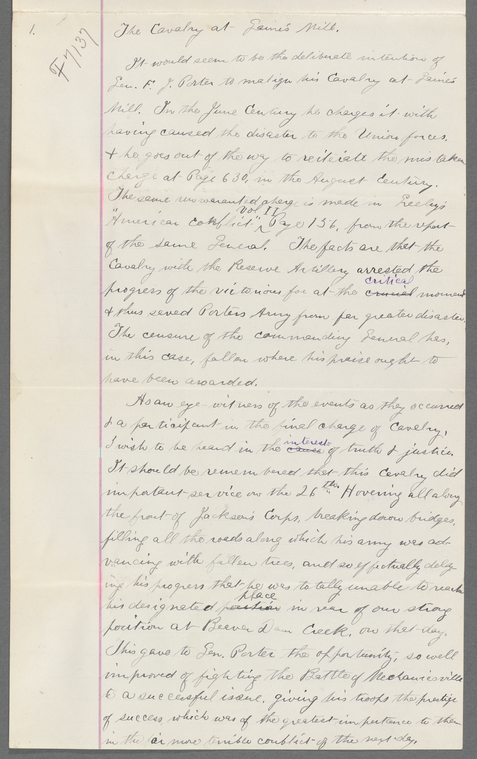 1.
F 7137
The Cavalry at Gaines Mill.
It would seem to be the deliberate intention of
Gen. F. J. Porter to malign his Cavalry at Gaines
Mill. In the June Century he charges it with
having caused the disaster to the Union forces,
& he goes out of the way to reiterate the mistaken
charge at Page 630, in the August Century.
The same unwarranted charge is made in Greeley's
"American Conflict" Vol. II Page 156, from the report
of the same General. The facts are that the
Cavalry with the Reserve Artillery arrested the
progress of the victorious foe at the crucial critical moment
& thus saved Porters Army from far greater disaster.
The censure of the commanding General has,
in this case, fallen where his praise ought to
have been awarded.
As an eye-witness of the events as they occurred
& a participant in the final charge of Cavalry,
I wish to be heard in the cause interest of truth & justice.
It should be remembered that this Cavalry did
important service on the 26th. Hovering all along
the front of Jackson's Corps, breaking down bridges,
filling all the roads along which his army was ad-
vancing with fallen trees, and so effectually delay-
ing his progress that he was totally unable to reach
his designated position place in rear of our strong
position at Beaver Dam Creek, on that day.
This gave to Gen. Porter the opportunity, so well
improved of fighting the Battle of Mechanicsville
to a successful issue, giving his troops the prestige
of success which was of the greatest importance to them
in the far more terrible conflict of the next day.